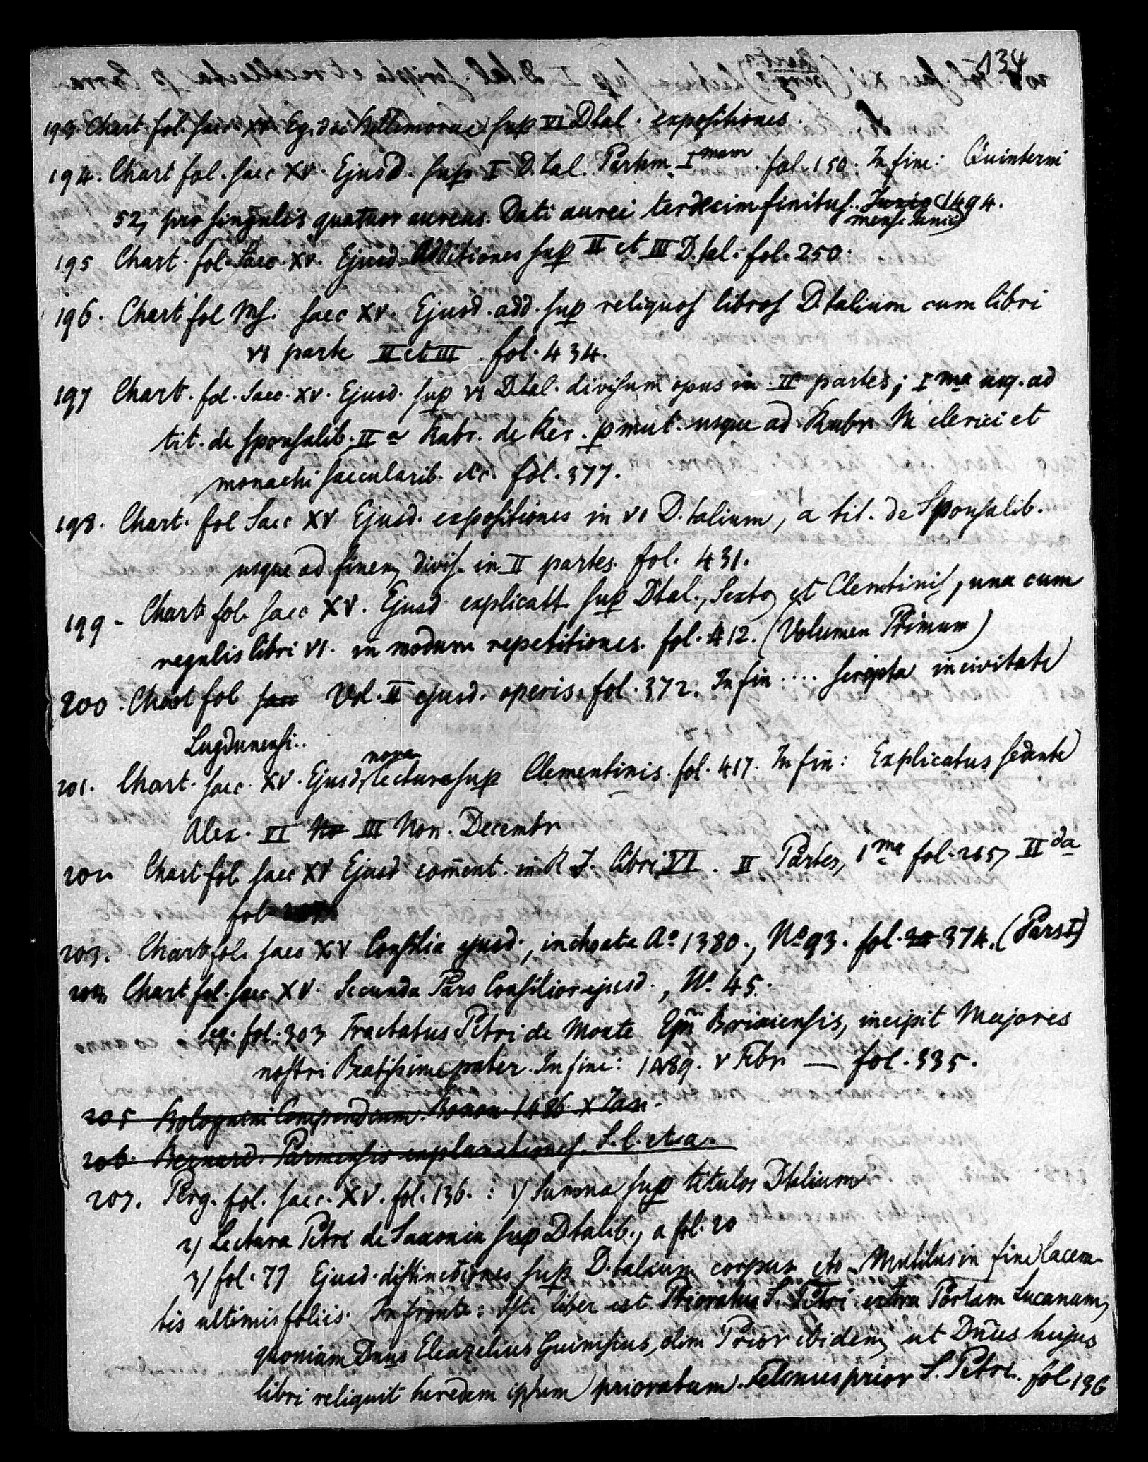 134
193. Chart fol. saec XV. Egidii Bellemerae sup VI Dtal. expositiones.
194. Chart fol. saec XV. Ejusd. sup I Dtal. Partem. Imam fol. 150. In fine: Quinterni
52, pro singulis quatuor aureus. Dati aurei terdecim finitus. mense Junio 1494.
195 Chart. fol. Saec XV. Ejusd. Additiones sup II et III D.tal. fol. 250.
196. Chart fol Ms. saec XV. Ejusd. add. sup reliquos libros Dtalium cum libri
VI parte II et III. fol. 434.
197 Chart. fol. Saec. XV. Ejusd. sup VI Dtal. divisum opus in II partes; Ima usq. ad
tit. de sponsalib. IIa Rubr. de Rer. pmut. usque ad Rubr. Ni clerici et
monachi saecularib. etc. fol. 377.
198. Chart. fol Saec XV Ejusd. expositiones in VI D.talium, a tit. de Sponsalib.
usque ad finem, divis. in II partes. fol. 431.
199. Chart fol. saec XV. Ejusd. explicatt. sup Dtal., Sexto, et Clementinis, una cum
regulis libri VI. in modum repetitiones. fol. 412. (Volumen Primum)
200. Chart fol saec Vol. II ejusd. operis. fol. 372. In fin: ... scripta in civitate
Lugdunensi..
201. Chart. saec. XV. Ejusd. nova lectura sup Clementinis. fol. 417. In fin: Explicatus sedente
Alex. VI No III Non. Decembr
202 Chart fol. saec XV Ejusd coment. in R J. libri VI. II Partes, 1ma fol. 265, IIda
fol.
203. Chart fol. saec XV Consilia ejusd., inchoata Ao 1380., No 93. fol. 374. (Pars I)
204 Chart fol. saec XV. Secunda Pars Consilior ejusd., No. 45.
Seq. fol. 303 Tractatus Petri de Monte Epi Brixiensis, incipit Majores
nostri Beatissime pater. In fine: 1489. V Febr — fol. 335.
205 Bolognini Compendium. Bonon 1486 X Jan.
206. Bernard. Parmensis explanationes. S. l. et a.
207. Perg. fol. saec. XV. fol. 136.: 1) Summa sup titulos Dtalium
2) Lectura Petri de Saxonia sup Dtalib., a fol. 20
3) fol. 77 Ejusd. distinctiones sup D.talium corpus etc Mutilus in fine lacera-
tis ultimis foliis. In fronte: Iste liber est Prioratus S. Petri extra Portam Lucanam,
quoniam Dnus Eleazelius Guinisius, olim Prior ibidem, ut Dnus hujus
libri reliquit heredem ipsum prioratum. prior S. Petri. fol 136